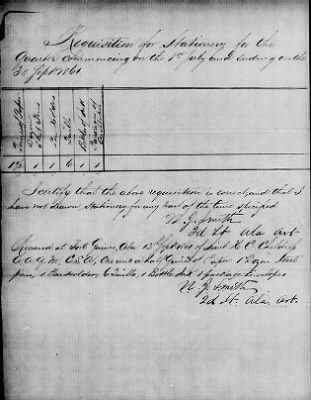 Requisition for Stationery for the
Quarter commencing on the 1st July and Ending on the
30 Sept 1861
Quires of Paper
Dozen Steel Pens
Pen Holders
Quills
Bottle of Ink
Package of Envelopes
1½ 1 1 6 1 1
I certify that the above requisition is correct and that I
have not drawn Stationery for any part of the time specified
N. J. Smith
2d Lt Ala Art
Received at Fort Gaines, Ala 13 of Lieut
A. A. Q. M. C. S. A, One and a half Quires of Paper 1 Dozen Steel
pens, 1 Penholder, 6 Quills, 1 Bottle Ink 1 package Envelopes
N. J. Smith
2d Lt. Ala, Art.